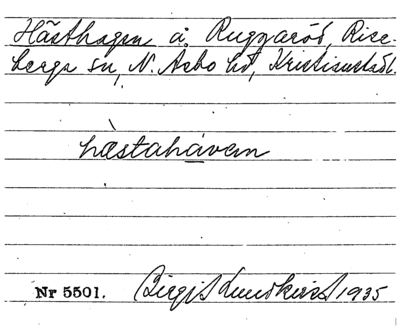 Hästhagen å Ruggaröd, Rise-
berga sn, N. Åsbo hd, Kristianstads l.
hæstahávem
Nr 5501. Birgit Lundkvist 1935